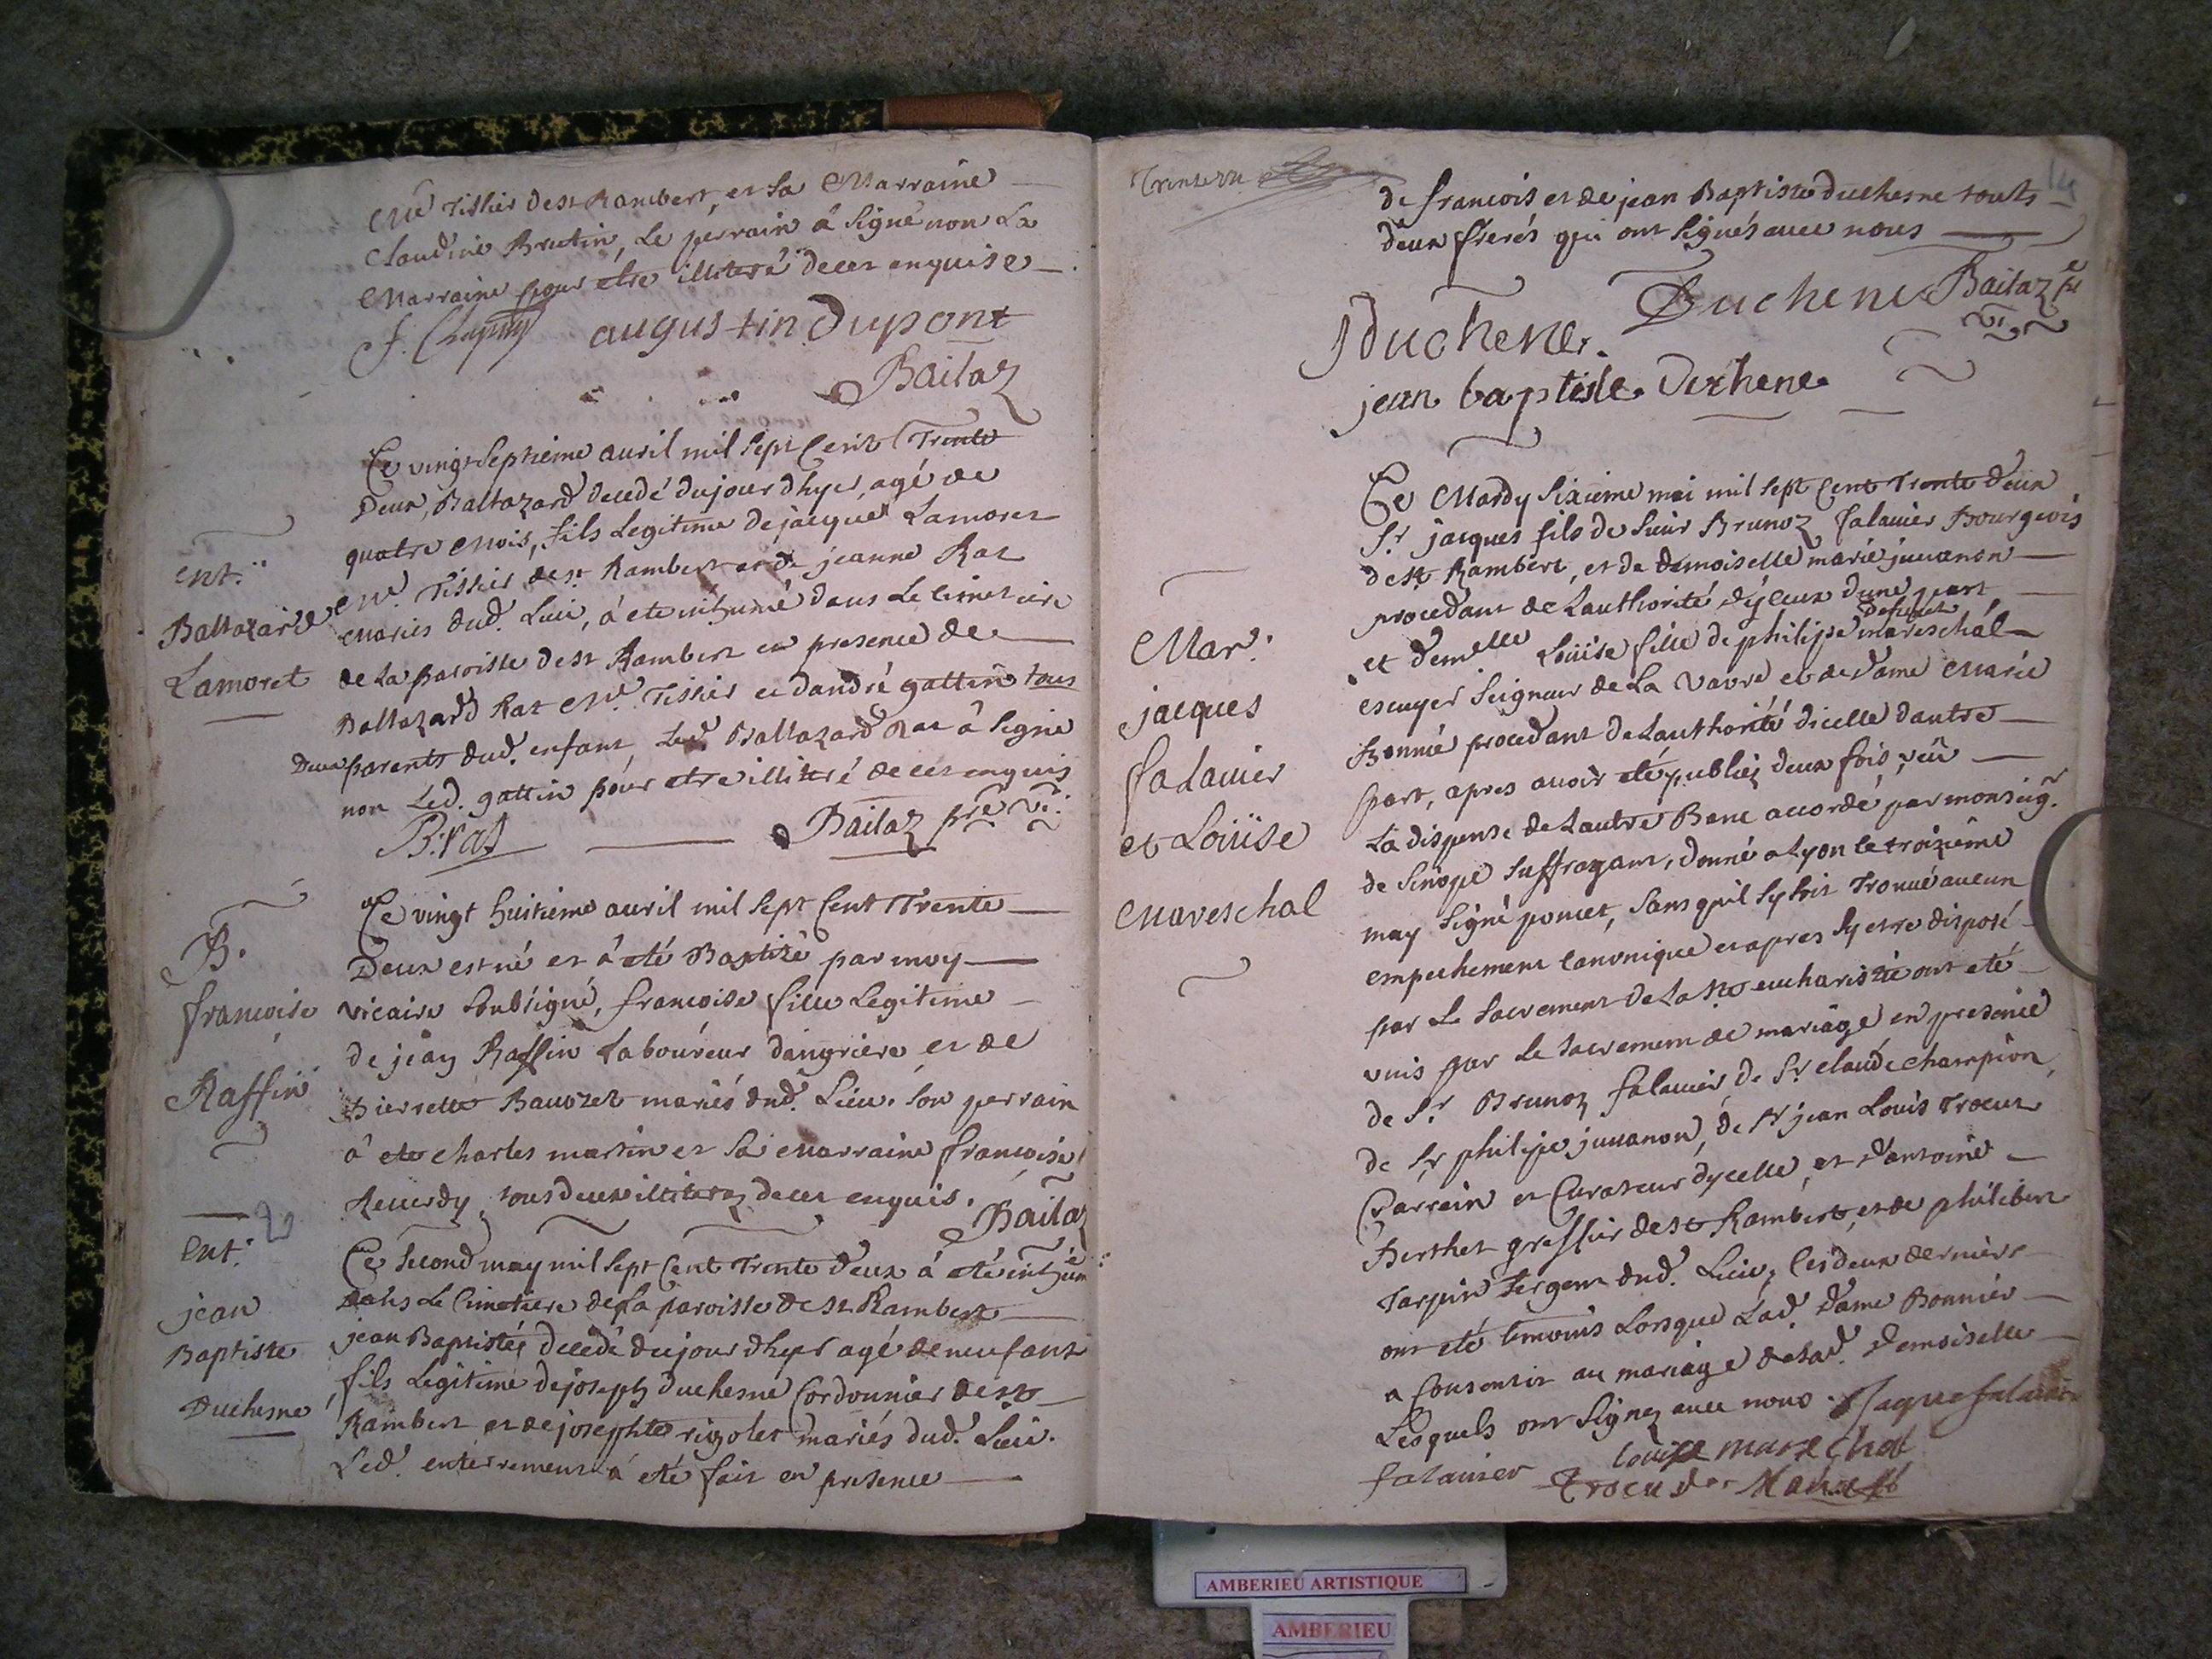 Me Tissier de st Rambert, et sa Marraine
Claudine Brutin, Le perrain à signé non La
Marraine pour etre illiteré de ces enquise
augustin Dupont
Bailaz
Ce vingt septieme auril mil sept Cent Trente
Deux, Baltazard decedé du jour dhyer, agé de
quatre mois, fils Legitime de jacque Lamoret
Me Tissier de st Rambert et de jeanne Rat
mariés dud. Lieu, à eté inhumé dans Le cimetiere
de La paroisse de st Rambert en presence de
Baltazard Rat Me Tissier et dandré gattin tous
Deux parents dud. enfant, Led. Baltazard Rat à signé
non Led. gattin pour etre illiteré de ces enquis
B. rat
Bailaz pre vi.
ent.
Baltazard
Lamoret
Ce vingt huitieme auril mil sept Cent Trente
Deux est né et à eté Baptizé par moy
vicaire soubsigné, francoise fille Legitime
de jean Raffin Laboureur dangriere et de
Pierrette Bauozet mariés dud. Lieu. son perrain
à eté charles martin et sa marraine francoise
Reuerdy, tous deux illiterez de ces enquis.
Bailaz
B.
francoise
Raffin
Ce second may mil sept Cent Trente Deux à eté inhumé
Dans Le Cimetiere de La paroisse de st Rambert
jean Baptiste decedé du jour dhyer agé de neuf ans
fils Legitime de joseph Duchesne Cordonnier de st
Rambert et de josephte rigolet mariés dud. Lieu.
Led. enterrement à eté fait en presence
Ent.
jean
Baptiste
Duchesne
14
de francois et de jean Baptiste duchesne touts
deux freres qui ont signés auec nous
Duchene Bailaz pre
vi.
J duchene.
jean baptiste duchene
Ce Mardy sixieme mai mil sept Cent Trente Deux
Sr. jacques fils de sieur Brunoz falauier Bourgeois
de st Rambert, et de Demoiselle marie juuanon
procedant de Lauthorité dyceux dune part,
Defunct
et demelle Loüise fille de philipe mareschal
escuyer seigneur de La Vavre et de Dame Marie
Bonnié procedant de Lauthorité dicelle dautre
part, apres auoir eté publiez deux fois, veû
La dispense de Lautre Banc accordé par monseig.
de sinope suffragant, donné a Lyon le troizieme
may signé poncet, sans quil sy soit Trouué aucun
empechement canonique et apres sy etre disposé
par Le sacrement de La ste eucharistie ont eté
vnis par Le sacrement de mariage en presence
de Sr. Brunoz falauier de Sr claude champion,
de Sr philipe juuanon, de Sr jean Louis Trocu
Parrain et Curateur dycelle, et dantoine
Berthet greffier de st Rambert, et de philibert
Tarpin sergent dud. Lieu, les deux derniers
ont eté temoins Lorsque Lad. Dame Bonnier
a Consentir au mariage de Lad. Demoiselle
Lesquels ont signez auec nous. Jaque falauier
falauier Louise marechal
Trocu
Mar.
jacques
falauier
et Loüise
Mareschal
AMBERIEU ARTISTIQUE
AMBERIEU